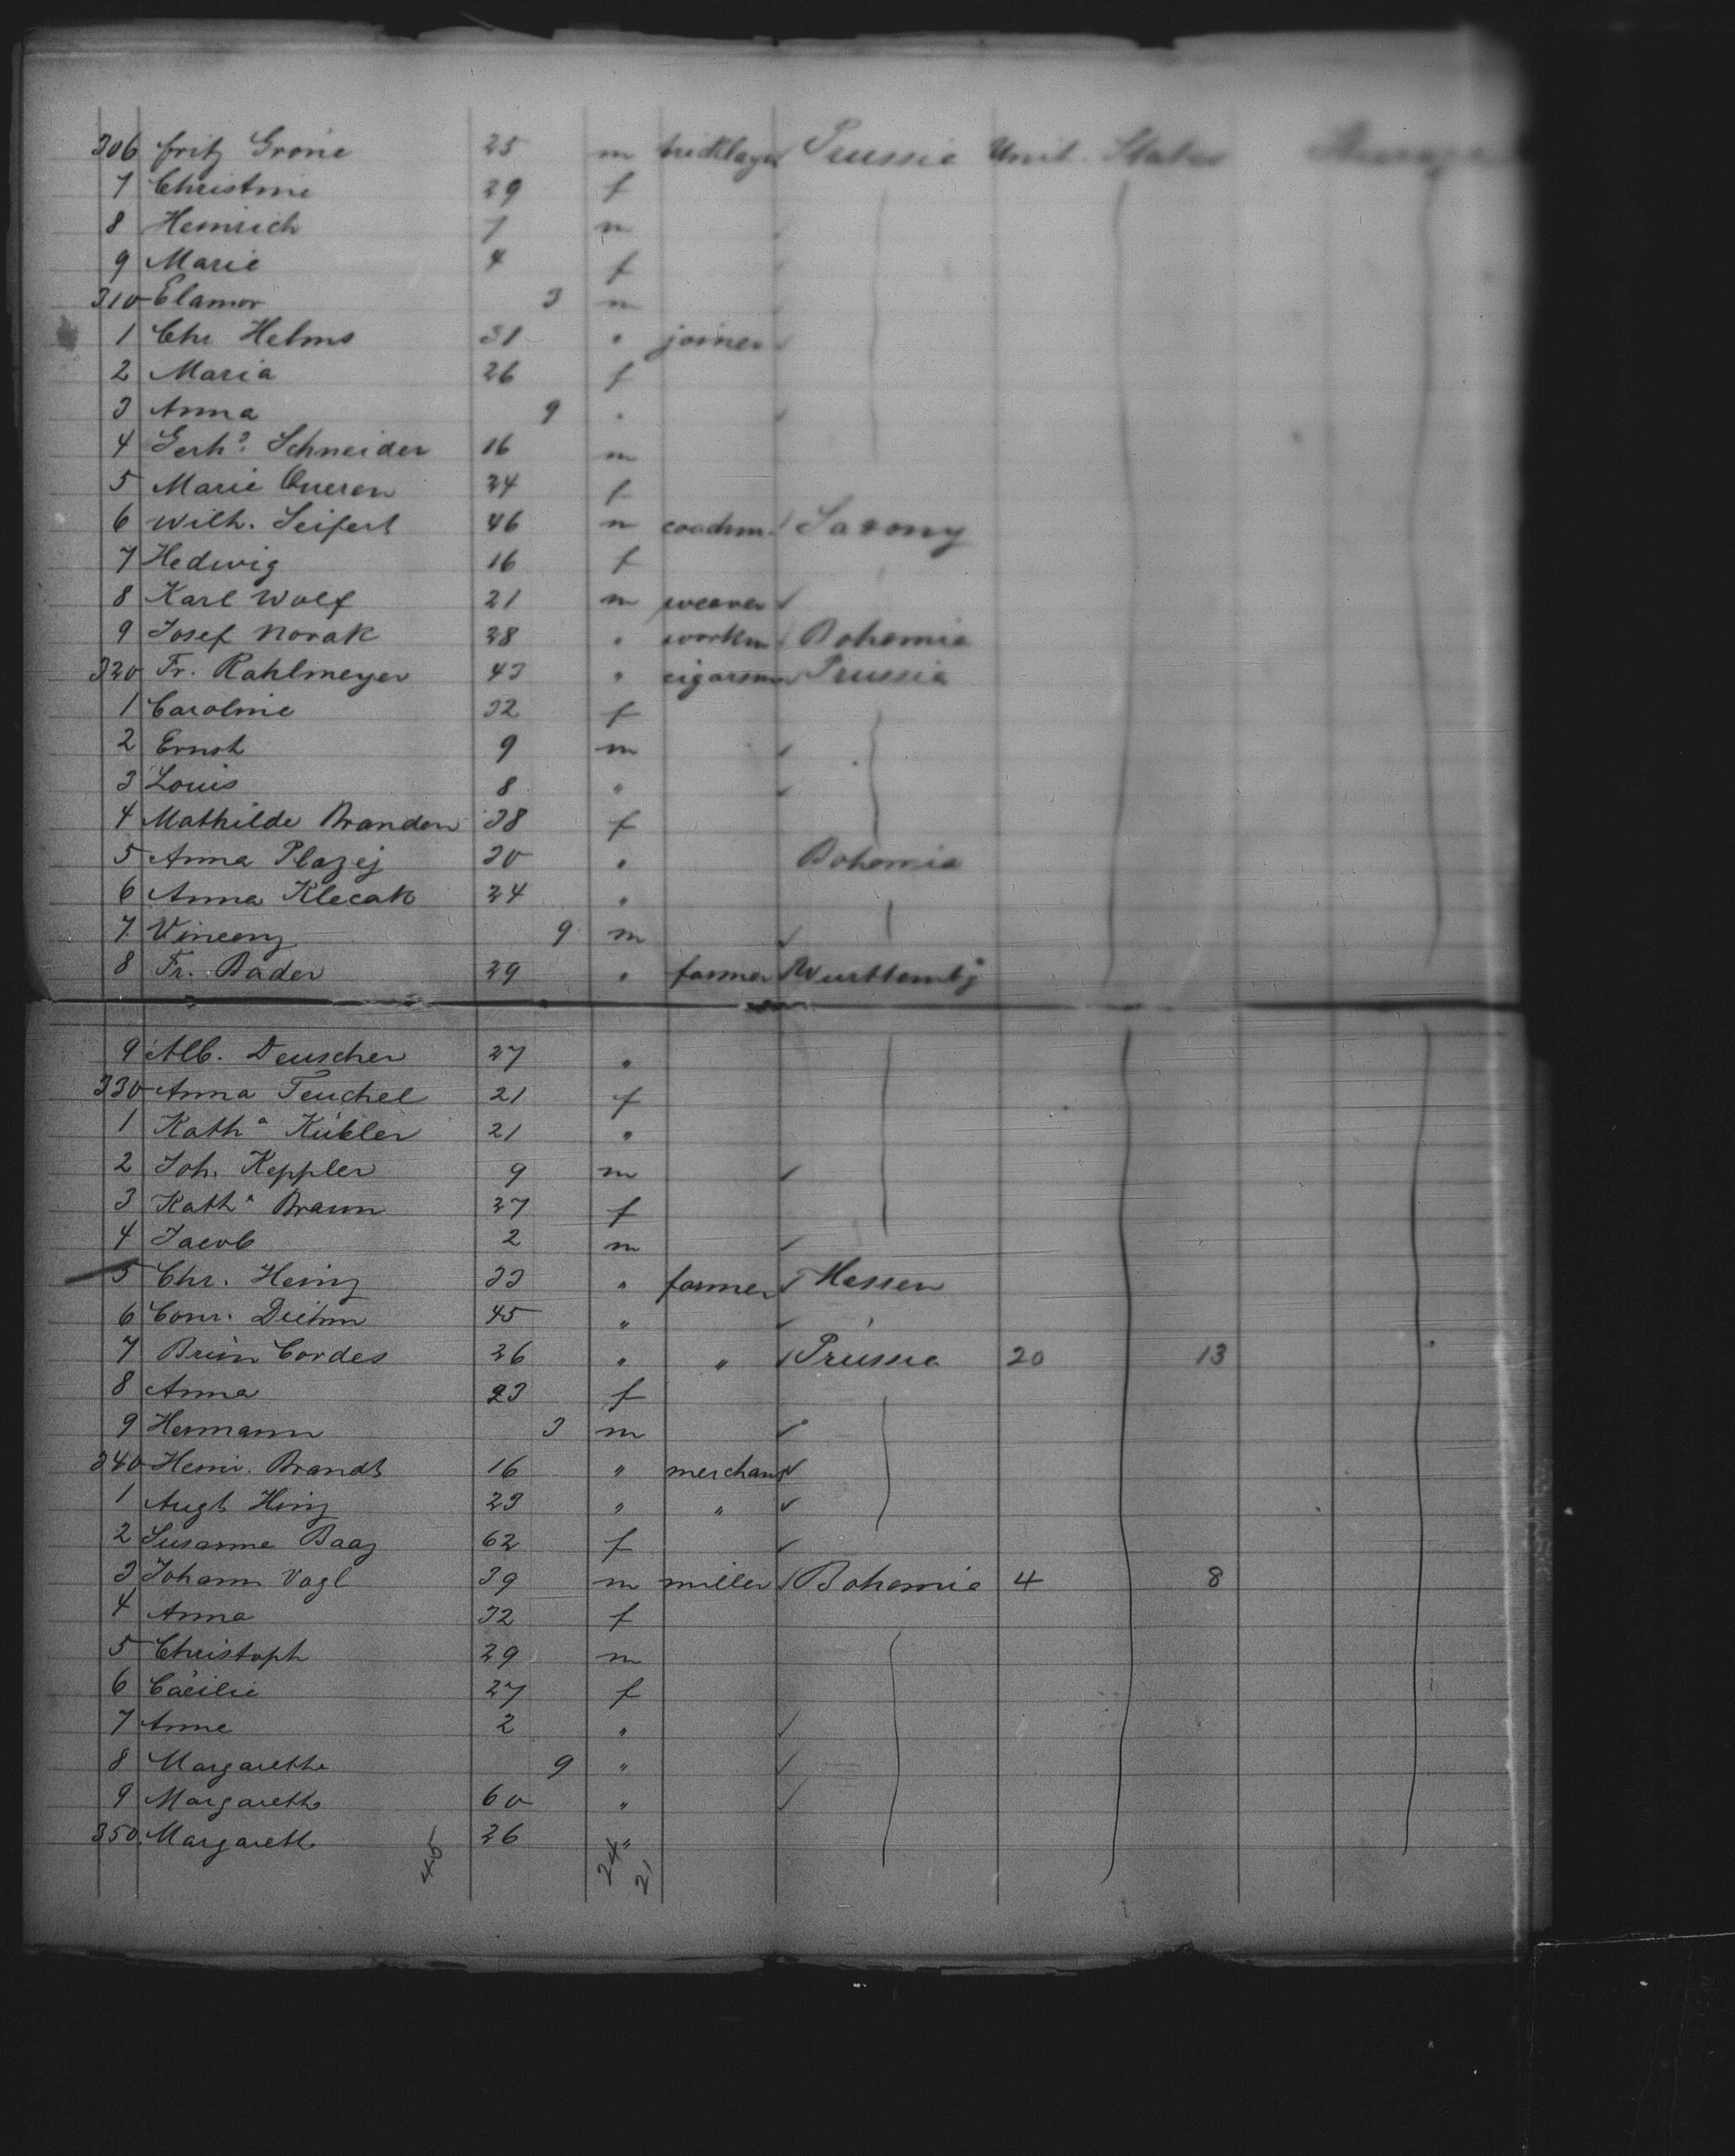 306 Fritz Grone 25 m bricklayer Prussia Unit. States Steerage
7 Christine 29 f
8 Heinrich 7 m
9 Marie 4 f
310 Elamor 3 m
1 Chr Helms 31 " joiner
2 Maria 26 f
3 Anna 9 "
4 Gerhd. Schneider 16 m
5 Marie Queren 24 f
6 Wilh. Seifert 46 m coachm. Saxony
7 Hedwig 16 f
8 Karl Wolf 21 m weaver
9 Josef Novak 28 " workm Bohemia
320 Fr. Rahlmeyer 43 " cigarsm Prussia
1 Caroline 32 f
2 Ernst 9 m
3 Louis 8 "
4 Mathilde Branden 38 f
5 Anna Plazej 20 " Bohemia
6 Anna Klecak 24 "
7 Vincenz 9 m
8 Fr. Bader 29 " farmer Wurttembg
9 Alb. Deuscher 27 "
330 Anna Teuchel 21 f
1 Katha Kübler 21 "
2 Joh. Keppler 9 m
3 Katha Braun 27 f
4 Jacob 2 m
5 Chr. Heinz 33 " farmer Hessen
6 Conr. Diehm 45 "
7 Brün Cordes 26 " " Prussia 20 13
8 Anna 23 f
9 Hermann 3 m
340 Heinr. Brandt 16 " merchant
1 Augt Hinz 23 " "
2 Susanne Baaz 62 f
3 Johann Vogl 39 m miller Bohemia 4 8
4 Anna 32 f
5 Christoph 29 m
6 Cäcilie 27 f
7 Anne 2 "
8 Margarethe 9 "
9 Margarethe 60 "
350 Margareth 26 "
45 24 21